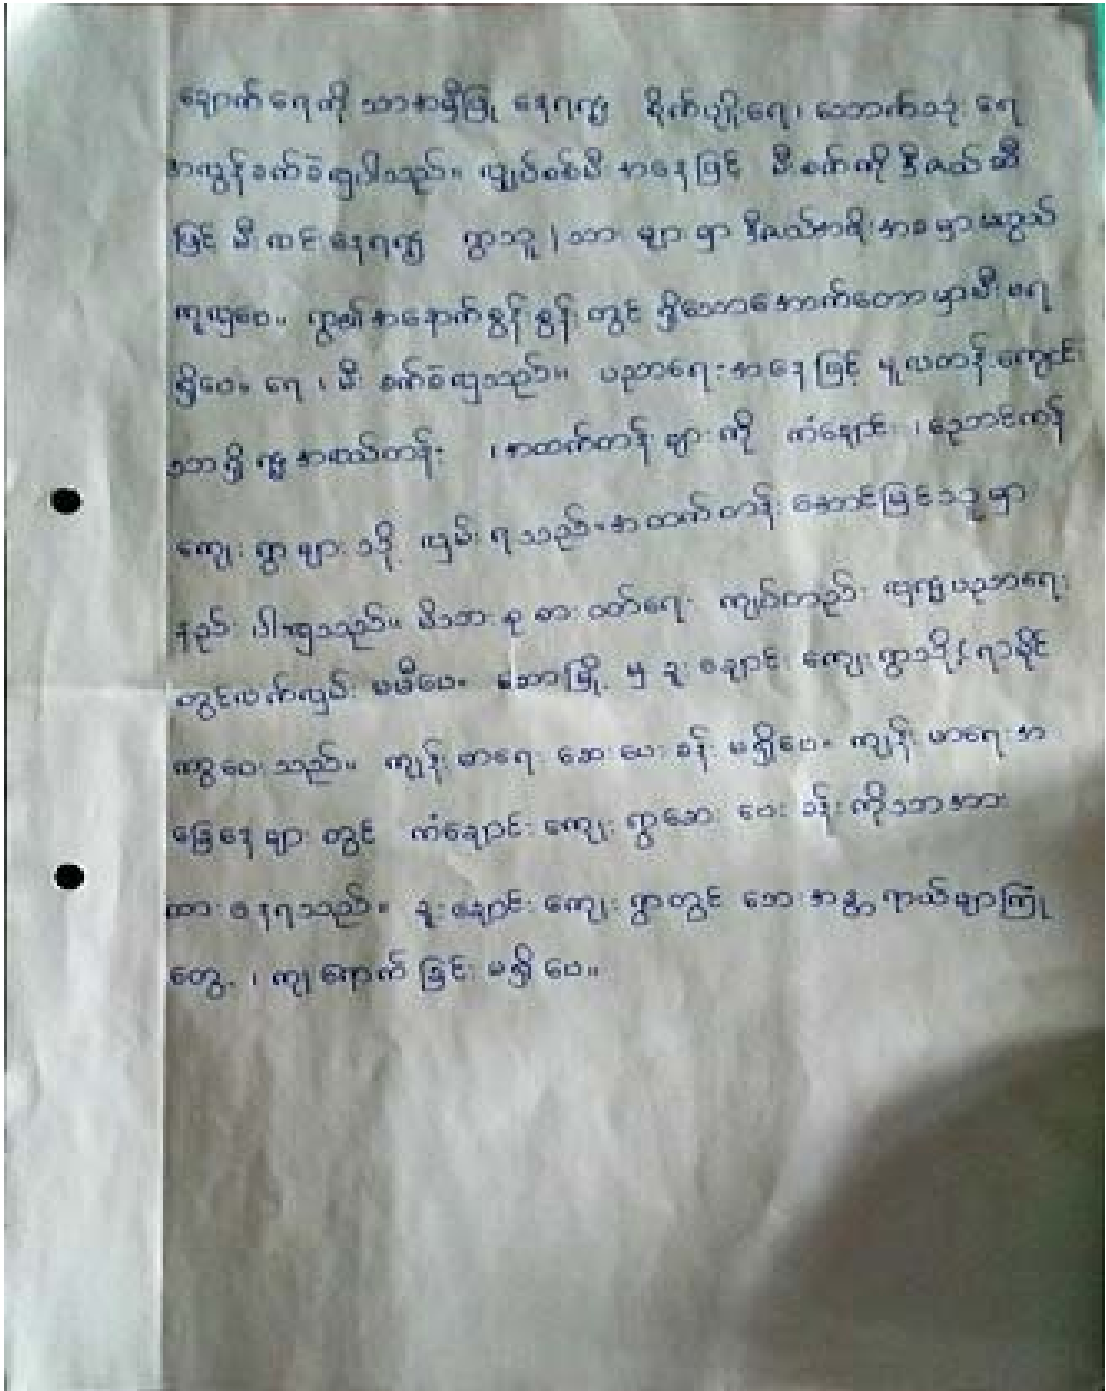 ချောက်ရေကို သာအမှီပြု နေရ၍ စိုက်ပျိုးရေ၊ သောက်သုံး ရေ
အလွန်ခက်ခဲ၍ပါသည်။ လျှပ်စစ်မီး အနေဖြင့် မီးစက်ကို ဒီဇယ်ဆီ
ဖြင့် မီးထွန်းနေရ၍ ရွာသူ/သား များ မှာ
ရွာ၏ အနောက်စွန်းစွန်း တွင် ရှိသော မီး မရ
ရှိပေ။ ရေ ၊ မီး ခက်ခဲ၍သည်။ ပညာရေး အနေဖြင့် မူလတန်းကျောင်း
သာ ရှိ၍ အလယ်တန်း ၊အထက်တန်း များ ကို ကံချောင်း ၊ညောင်ကန်
ကျေးရွာ များ သို့ လှမ်း ရသည်။အထက်တန်း အောင်မြင်သူမှာ
နည်း ပါး၍သည်။ မိသားစု စား ဝတ်ရေး ကျပ်တည်း ၍ ပညာရေး
တွင်လက်လှမ်း မမီပေ။ မြို့ မှ ချောင်း ကျေးရွာသို့
ဝေးသည်။ ကျန်းမာရေး ဆေး ပေး ခန်း မရှိပေ။ ကျန်းမာရေး အ
ခြေနေ များ တွင် ကံချောင်း ကျေးရွာဆေး ပေး ခန်း ကိုသာ အား
ထား နေရသည်။ ချောင်း ကျေးရွာတွင် ဘေး အန္တရာယ်များကြုံ
တွေ့ ၊ ကျရောက် ခြင်း မရှိ ပေ။